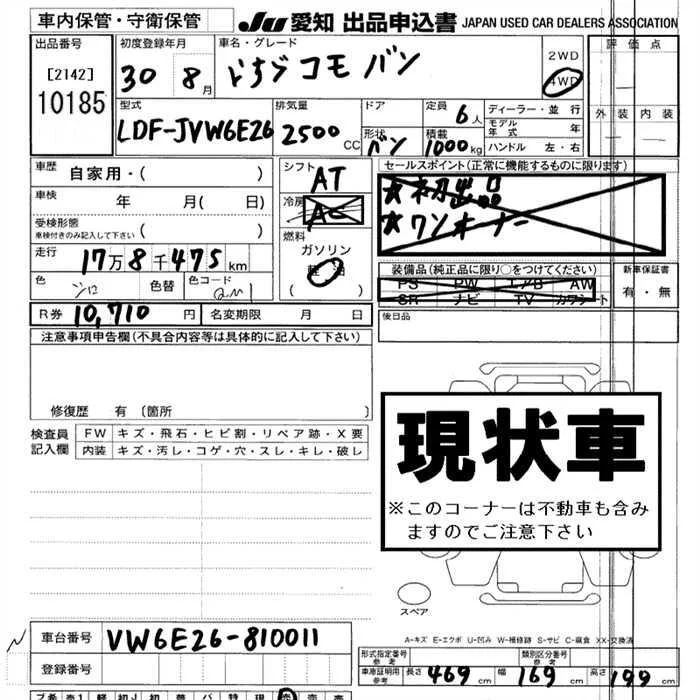 車内保管・守衛保管 JU 愛知 出品申込書 JAPAN USED CAR DEALERS ASSOCIATION
出品番号 初度登録年月 車名・グレード 評価点
[2142] 30 8月 いすゞコモ バン 2WD 4WD
10185 外装 内装
型式 排気量 ドア 定員 6人 ディーラー・並行
LDF-JVW6E26 2500cc 形状 バン 積載 1000kg モデル年式 年
ハンドル 左・右
車歴 自家用・( ) シフト AT セールスポイント(正常に機能するものに限ります)
車検 年 月( 日) 冷房 AC ★初出品
受検形態 ★ワンオーナー
車検付きのみ記入して下さい ( ) 燃料
走行 17万8千475km ガソリン
軽油 装備品(純正品に限り○をつけてください) 新車保証書
色 シロ 色替 色コード QM1 ( ) PS PW エアB AW 有・無
SR ナビ TV カワシート
R券 10,710円 名変期限 月 日 後日品
注意事項申告欄(不具合内容等は具体的に記入して下さい)
修復歴 有 〔箇所 〕
現状車
検査員 FW キズ・飛石・ヒビ割・リペア跡・X要
記入欄 内装 キズ・汚レ・コゲ・穴・スレ・キレ・破レ
※このコーナーは不動車も含み
ますのでご注意下さい
スペア
A-キズ E-エクボ U-凹み W-補修跡 S-サビ C-腐食 XX-交換済
車台番号 VW6E26-810011
登録番号
形式指定番号 参考 類別区分番号 参考
車庫証明用 参考 長さ 469cm 幅 169cm 高さ 199cm